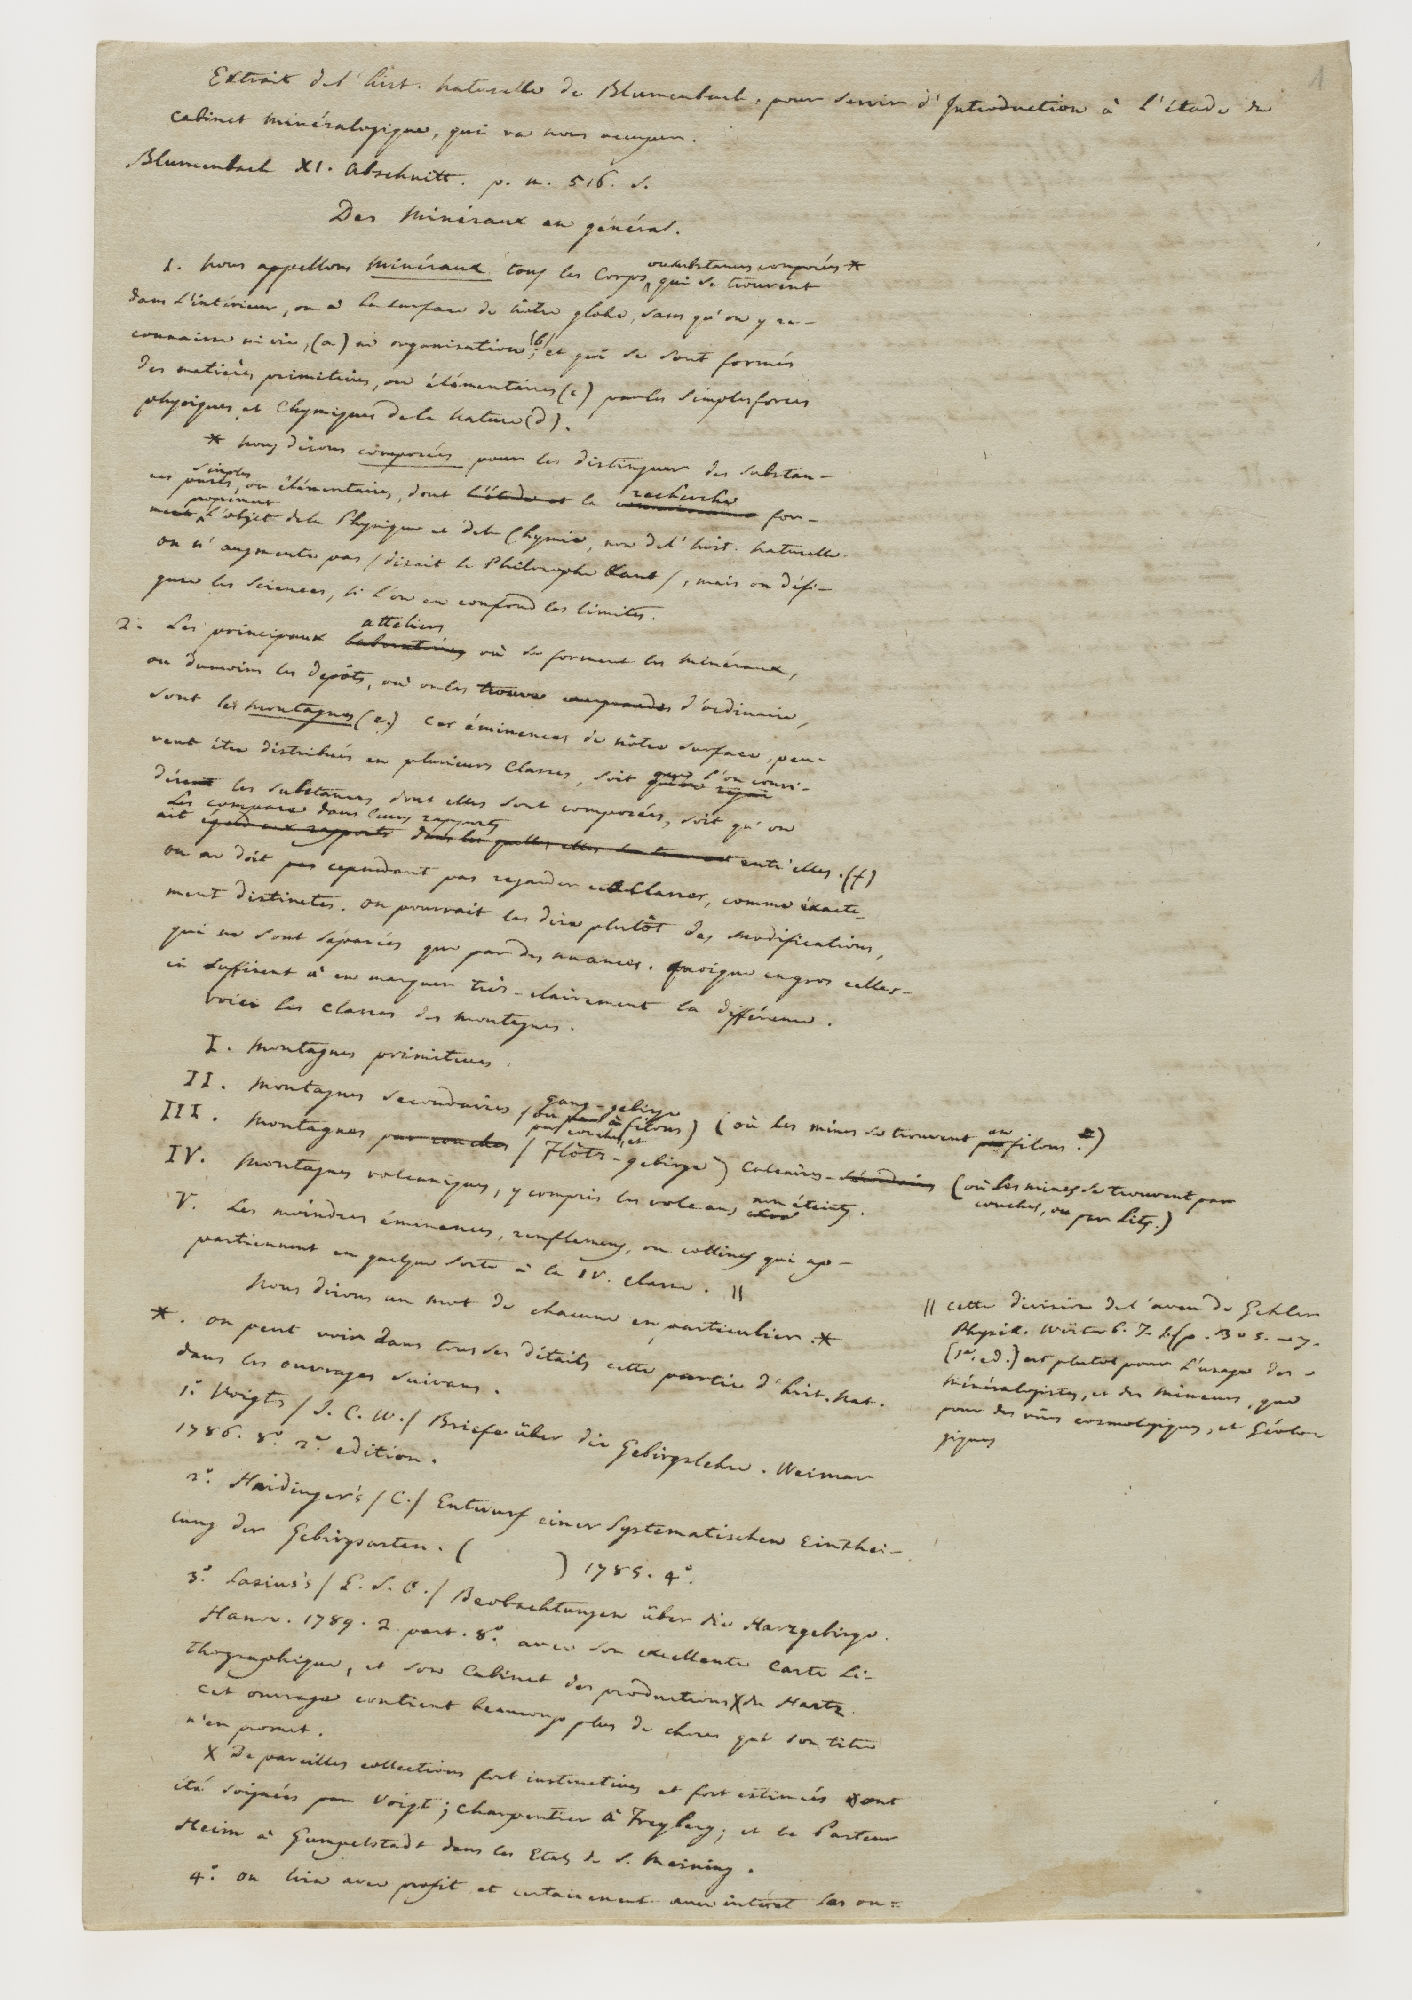 1
Extrait de l'hist. naturelle de Blumenbach, pour servir d'Introduction à l'étude du
Cabinet minéralogique, qui va nous occuper.
Blumenbach XI. Abschnitt. p. m. 516. s.
Des Minéraux en général.
1. Nous appellons Minéraux tous les Corps, ou substances composées * qui se trouvent
dans l'intérieur, ou à la surface de nôtre globe, sans qu'on y re-
connaisse ni vie, (a) ni organisation (b); et qui se sont formés
des matières primitives, ou élémentaires (c) par les simples forces
physiques et Chymiques de la nature (d).
* Nous disons composées pour les distinguer des substan-
ces pures, simples, ou élémentaires, dont l'étude et la recherche for-
ment proprement l'objet de la Physique et de la Chymie, non de l'hist. naturelle.
on n'augmente pas / disait le Philosophe Kant /, mais on défi-
gure les sciences, si l'on en confond les limites.
2. Les principaux laboratoires atteliers où se forment les minéraux,
ou dumoins les dépôts, où on les trouve d'ordinaire,
sont les montagnes (e.) Ces éminences de nôtre surface peu-
vent être distribuées en plusieurs Classes, soit que l'on consi-
dère les substances dont elles sont composées, soit qu'on
les compare dans leurs rapports
ait égard aux rapports dans les quelles elles se trouvent entr'elles. (f)
on ne doit pas cependant pas regarder ces Classes, comme exacte-
ment distinctes. on pourrait les dire plutôt des modifications,
qui ne sont séparées que par des nuances. quoique en gros celles-
ci suffisent à en marquer très-clairement la différence.
Voici les Classes des montagnes.
I. Montagnes primitives.
II. Montagnes secondaires / gang-gebirge ou à filons) (où les mines se trouvent en filons *)
III. Montagnes par couches / par couches, et Flötz-gebirge) calcaires-secondaires (où les mines se trouvent par
couches, ou par lits.)
IV. Montagnes volcaniques, y compris les volcans non éteints.
V. Les moindres éminences, renflemens, ou collines qui ap-
partiennent en quelque sorte à la IV. classe. ||
Nous dirons un mot de chacune en particulier. *
|| cette division de l'aveu de Gehler
Physik. Wörterb. T. 2. p. 305. - 7.
(1e. ed.) est plutot pour l'usage des
minéralogistes, et des mineurs, que
pour des vües cosmologiques, et Géolo-
giques
*. on peut voir dans tous ses détails cette partie d'hist. nat.
dans les ouvrages suivans.
1.° Voigts / J. C. W. / Briefe über die Gebirgslehre. Weimar
1786. 8.° 2.e edition.
2.° Haidinger's / C. / Entwurf einer Systematischen Einthei-
lung der Gebirgsarten. ( ) 1785. 4.°
3.° Lasius's / G. S. O. / Beobachtungen über die Harzgebirge.
Hanov. 1789. 2 part. 8.° avec son excellente Carte Li-
thographique, et son Cabinet des productions X du Hartz.
cet ouvrage contient beaucoup plus de choses que son titre
n'en promet.
X De pareilles collections fort instructives et fort estimées ont
été soignées par Voigt; Charpentier à Freyberg; et le Pasteur
Heim à Gumpelstadt dans les Etats de S. Meining.
4.° on lira avec profit et certainement avec intérêt les ou-